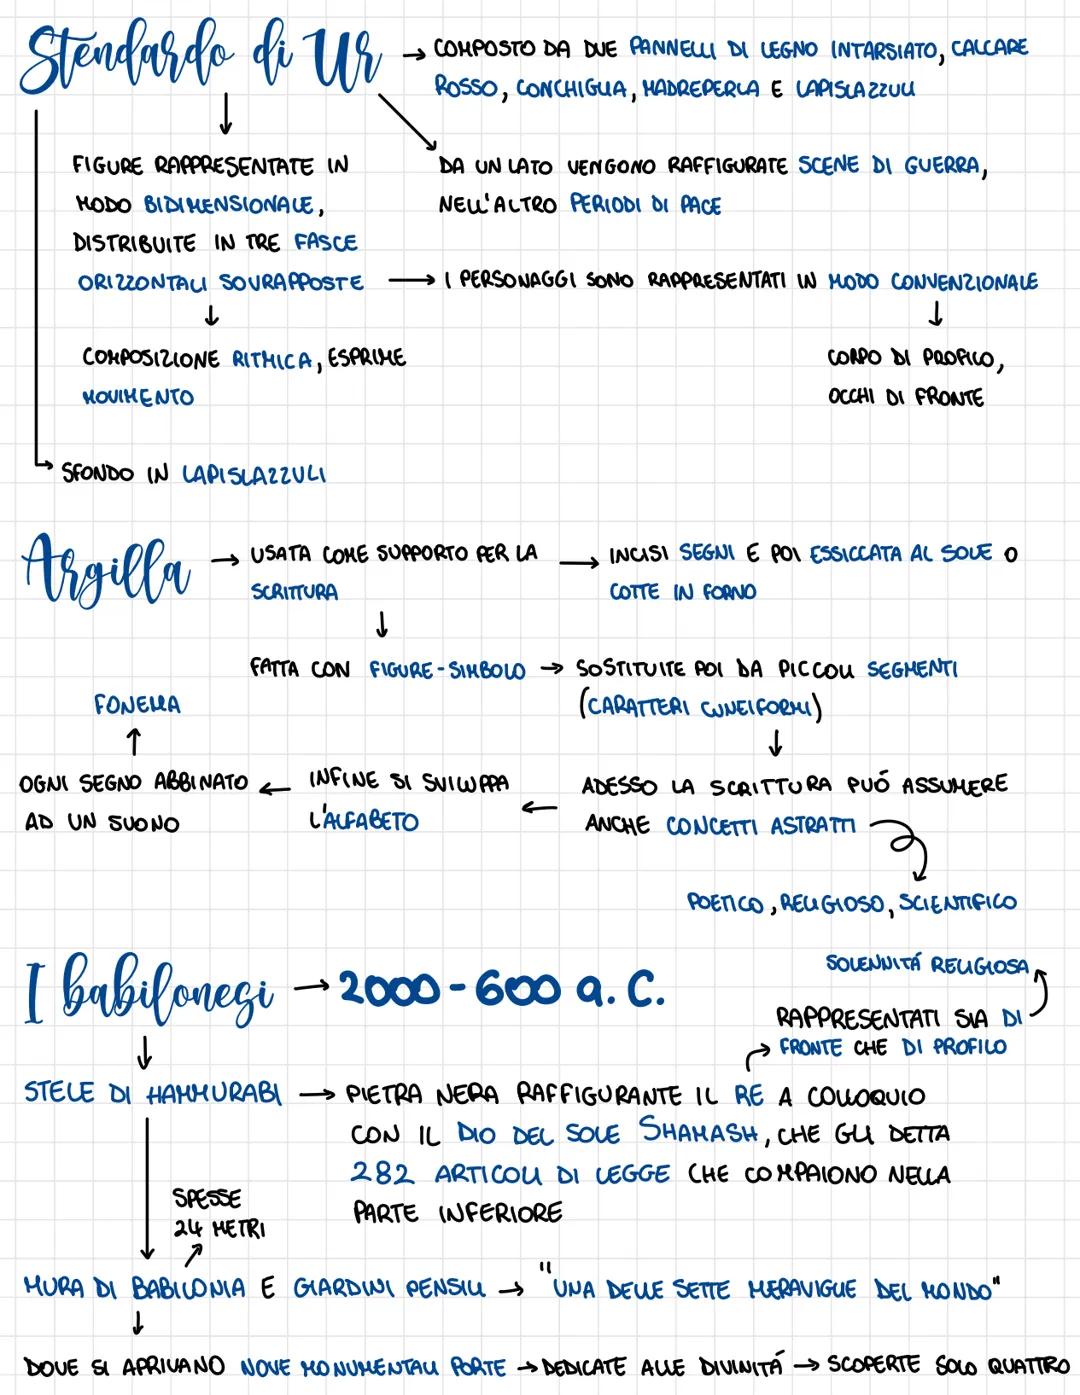 Stendardo di Ur → COMPOSTO DA DUE PANNELLI DI LEGNO INTARSIATO, CALCARE
ROSSO, CONCHIGLIA, MADREPERLA E LAPISLAZZULI
FIGURE RAPPRESENTATE IN
MODO BIDIMENSIONALE,
DISTRIBUITE IN TRE FASCE
ORIZZONTALI SOVRAPPOSTE
DA UN LATO VENGONO RAFFIGURATE SCENE DI GUERRA,
NELL'ALTRO PERIODI DI PACE
→ I PERSONAGGI SONO RAPPRESENTATI IN MODO CONVENZIONALE
COMPOSIZIONE RITMICA, ESPRIME
MOVIMENTO
CORPO DI PROFILO,
OCCHI DI FRONTE
SFONDO IN LAPISLAZZULI
Argilla → USATA COME SUPPORTO PER LA
SCRITTURA
→ INCISI SEGNI E POI ESSICCATA AL SOLE O
COTTE IN FORNO
FATTA CON FIGURE-SIMBOLO → SOSTITUITE POI DA PICCOLI SEGMENTI
(CARATTERI CUNEIFORMI)
FONEMA
OGNI SEGNO ABBINATO
AD UN SUONO
← INFINE SI SVILUPPA
L'ALFABETO
← ADESSO LA SCRITTURA PUÓ ASSUMERE
ANCHE CONCETTI ASTRATTI
POETICO, RELIGIOSO, SCIENTIFICO
I babilonesi → 2000-600 a.C.
SOLENNITÁ RELIGIOSA
RAPPRESENTATI SIA DI
FRONTE CHE DI PROFILO
STELE DI HAMMURABI → PIETRA NERA RAFFIGURANTE IL RE A COLLOQUIO
CON IL DIO DEL SOLE SHAMASH, CHE GLI DETTA
282 ARTICOLI DI LEGGE CHE COMPAIONO NELLA
PARTE INFERIORE
SPESSE
24 METRI
MURA DI BABILONIA E GIARDINI PENSILI → "UNA DELLE SETTE MERAVIGLIE DEL MONDO"
DOVE SI APRIVANO NOVE MONUMENTALI PORTE → DEDICATE ALLE DIVINITÁ → SCOPERTE SOLO QUATTRO